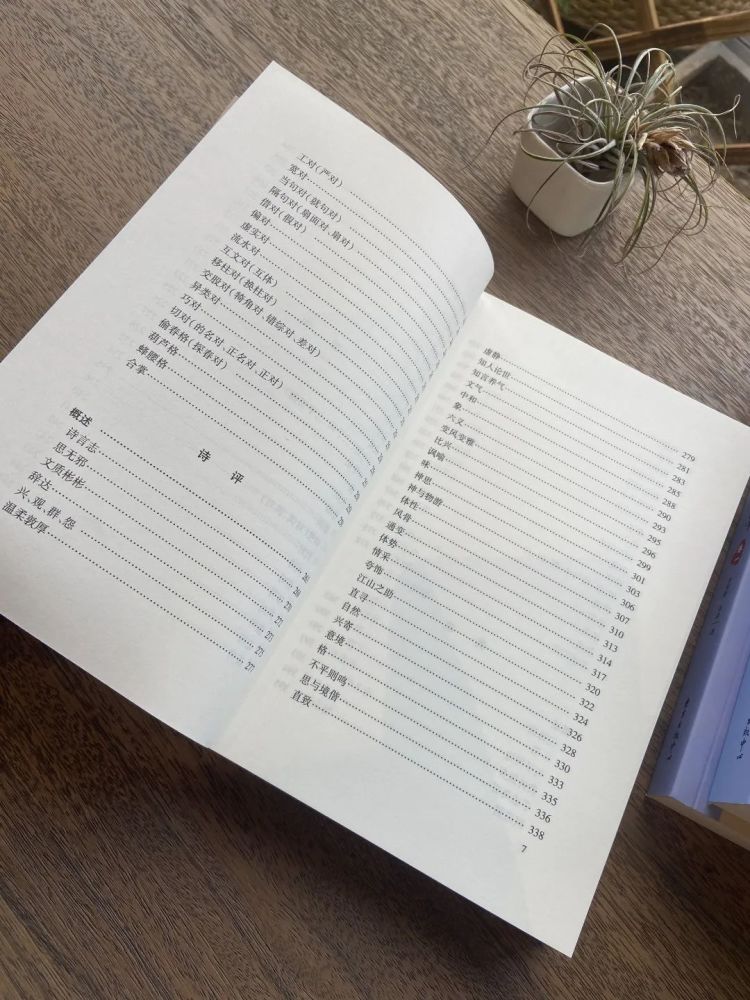 工对(严对)
宽对
当句对(就句对)
隔句对(扇面对、扇对)
借对(假对)
偏对
虚实对
流水对
互文对(互体)
移柱对(换柱对)
交股对(犄角对、错综对、差对)
异类对
巧对
切对(的名对、正名对、正对)
偷春格(探春对)
葫芦格
蜂腰格
合掌
诗 评
概述
诗言志
思无邪
文质彬彬
辞达
兴、观、群、怨
温柔敦厚
虚静 279
知人论世 281
知言养气 283
文气 285
中和 288
象 290
六义 293
变风变雅 295
比兴 296
讽喻 299
味 301
神思 303
神与物游 306
体性 307
风骨 310
通变 313
体势 314
情采 317
夸饰 320
江山之助 322
直寻 324
自然 326
兴寄 328
意境 330
格 333
不平则鸣 335
思与境偕 336
直致 338
7